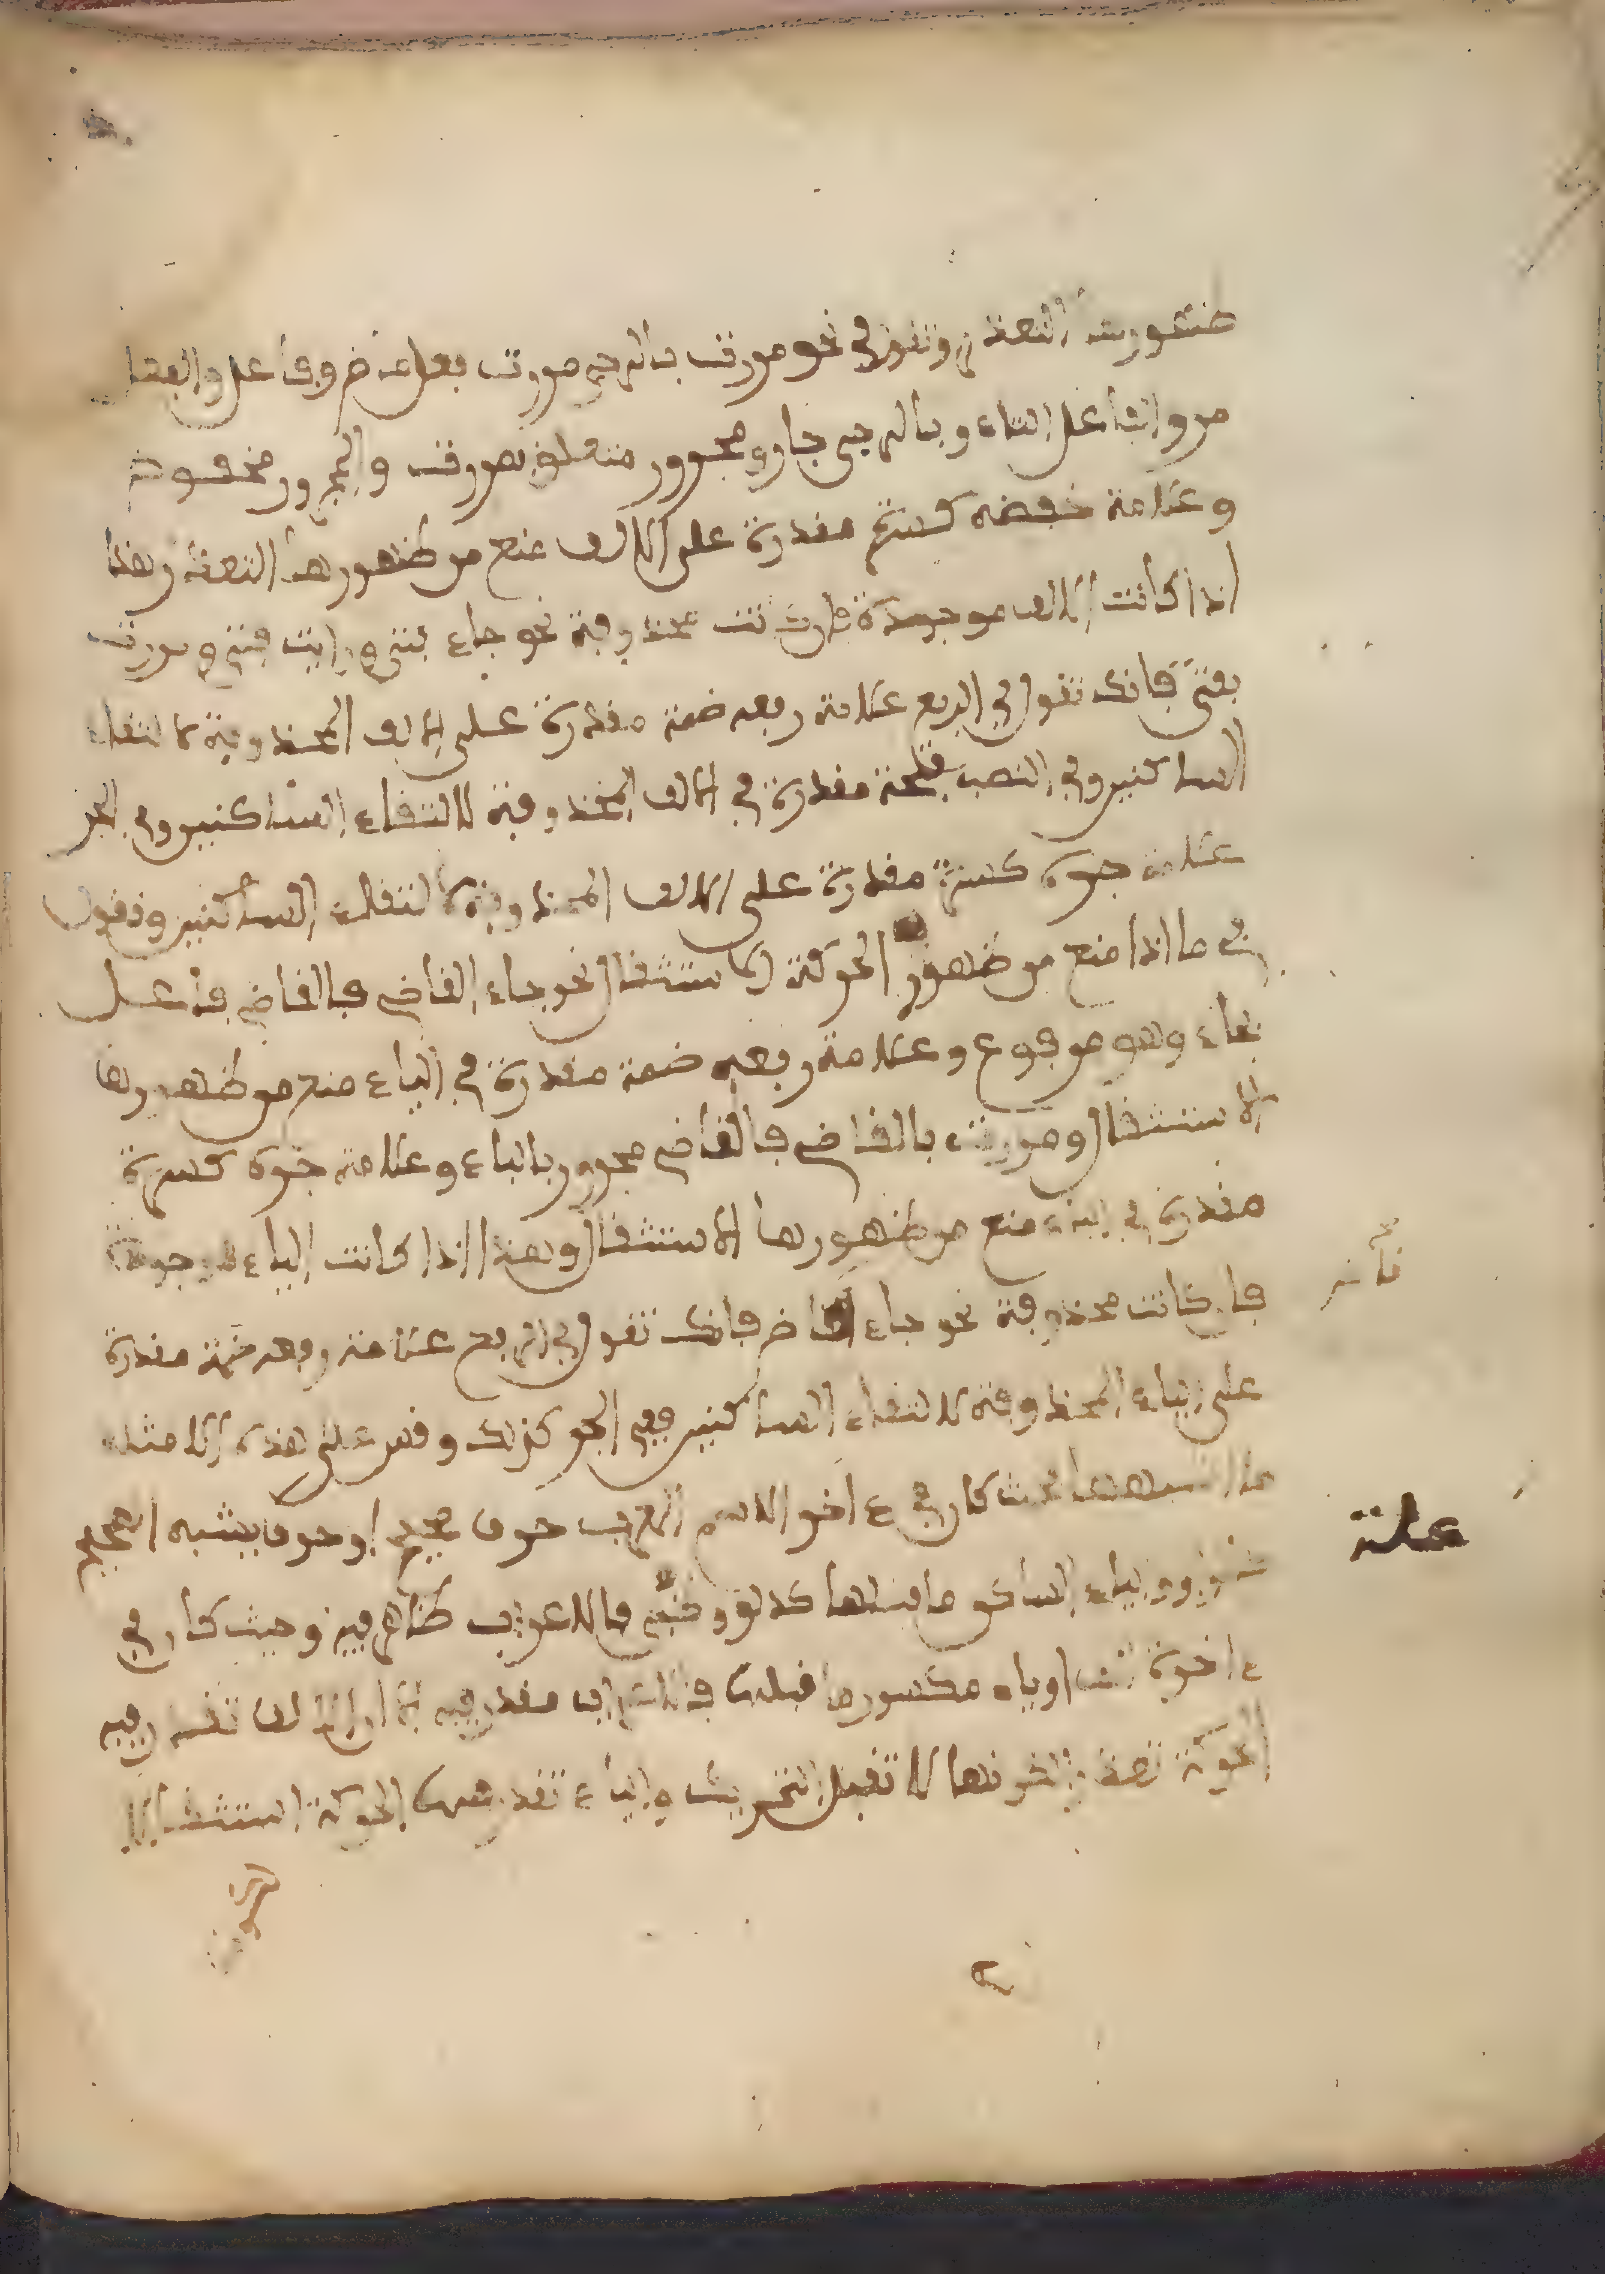 التعذر وتقول في نحو مررت بالرحى مررت فعل ماض وفاعل والفعل
مر والفاعل التاء وبالرحى جار ومجرور متعلق بمررت والمجرور مخفوض
وعلامة خفضه كسرة مقدرة على الالف منع من ظهورها التعذر وهذا
اذا كانت الالف موجودة فان كانت محذوفة نحو جاء فتى ورايت فتى ومررت
بفتى فانك تقول في الرفع علامة رفعه ضمة مقدرة على الالف المحذوفة لالتقاء
الساكنين وفي النصب فتحة مقدرة في الالف المحذوفة لالتقاء الساكنين وفي الجر
علامة جره كسرة مقدرة على الالف المحذوفة لالتقاء الساكنين وتقول
في ما اذا منع من ظهور الحركة الاستثقال نحو جاء القاضي فالقاضي فاعل
بجاء وهو مرفوع وعلامة رفعه ضمة مقدرة في الياء منع من ظهورها
الاستثقال ومررت بالقاضي فالقاضي مجرور بالباء وعلامة جره كسرة
مقدرة في الياء منع من ظهورها الاستثقال وهذا اذا كانت الياء موجودة
فان كانت محذوفة نحو جاء قاض فانك تقول في الرفع علامة رفعه ضمة مقدرة
على الياء المحذوفة لالتقاء الساكنين ففي الجر كذلك وقس على هذه الامثلة
ما اشبهها فحيث كان في ءاخر الاسم المعرب حرف صحيح او حرف يشبه الصحيح
والياء الساكن ما قبلها كدلو وظبي فالاعراب ظاهر فيه وحيث كان في
ءاخره الف او ياء مكسور ما قبلها فالاعراب مقدر فيه الا ان الالف تقدر فيه
الحركة تعذرا لانها لا تقبل التحريك والياء تقدر فيها الحركة استثقالا
علة